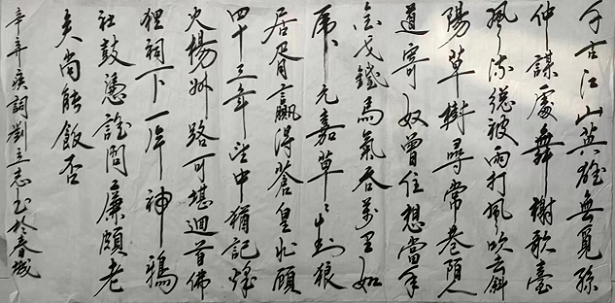 千古江山英雄無覓孫
仲謀處舞榭歌臺
風流總被雨打風吹去斜
陽草樹尋常巷陌人
道寄奴曾住想當年
金戈鐵馬氣吞萬里如
虎元嘉草〻封狼
居胥贏得蒼皇北顧
四十三年望中猶記烽
火楊州路可堪迴首佛
狸祠下一片神鴉
社鼓憑誰問廉頗老
矣尚能飯否
辛弃疾詞劉立志書於春城